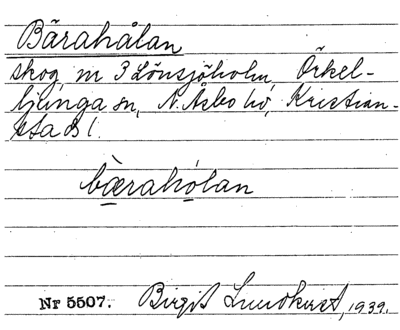 Bårahålan
skog, nr 3 Lönsjöholm, Örkel-
ljunga sn, N. Åsbo hd, Kristian-
stads l.
bæ̀rahólan
Nr 5507. Birgit Lundkvist, 1939.